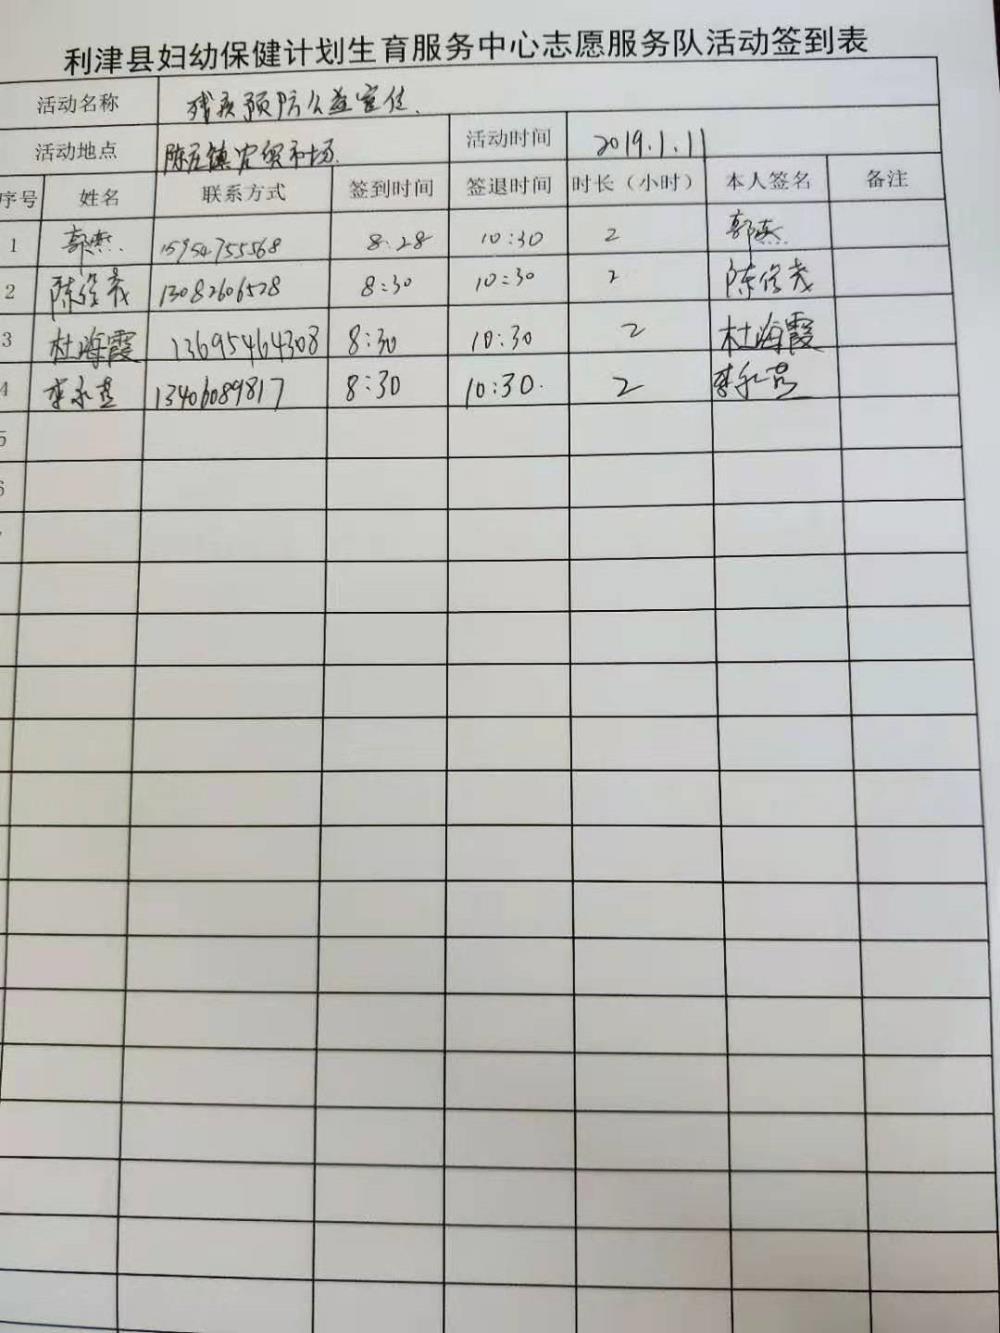 利津县妇幼保健计划生育服务中心志愿服务队活动签到表
活动名称 残疾预防公益宣传
活动地点 陈庄镇农贸市场 活动时间 2019.1.11
序号 姓名 联系方式 签到时间 签退时间 时长（小时） 本人签名 备注
1 郭燕 15954755568 8:28 10:30 2 郭燕
2 陈俊英 13082606528 8:30 10:30 2 陈俊英
3 杜海霞 13695464308 8:30 10:30 2 杜海霞
4 李永燕 13406089817 8:30 10:30. 2 李永燕
5
6